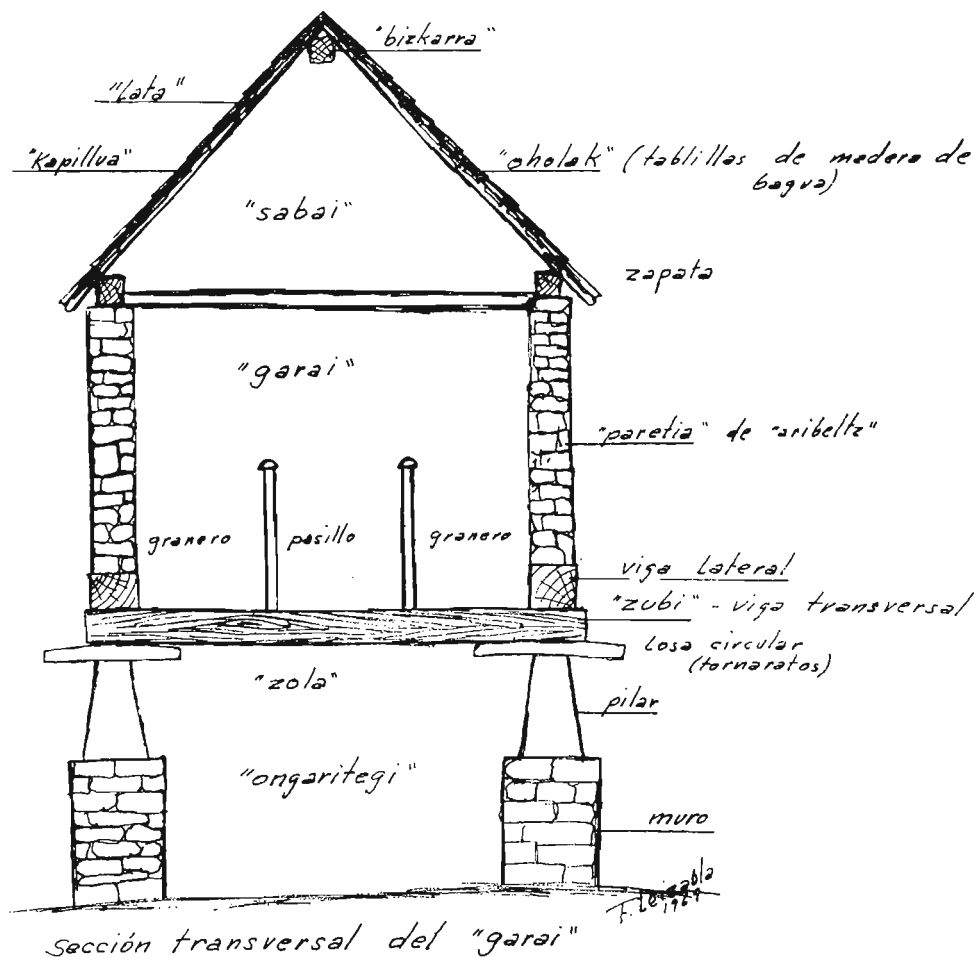 "bizkarra"
"Lata"
"Kapillua"
"oholak" (tablillas de madera de
bagua)
"sabai"
zapata
"garai"
"paretia" de "aribeltz"
granero pasillo granero
viga Lateral
"zubi" - viga transversal
Losa circular
(tornaratos)
"zola"
pilar
"ongaritegi"
muro
1969
Sección transversal del "garai"